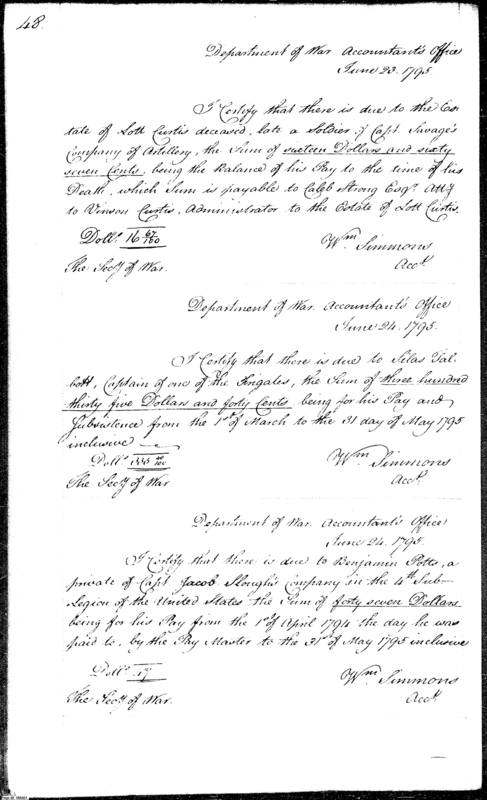 48.
Department of War Accountant's Office
June 23. 1795
I Certify that there is due to the Es-
tate of Lott Curtis deceased, late a Soldier of Capt. Savage's
Company of Artillery, the Sum of sixteen Dollars and sixty
seven Cents, being the balance of his Pay to the time of his
Death, which Sum is payable to Caleb Strong Esqr. Atty
to Vinson Curtis, Administrator to the Estate of Lott Curtis.
Dolls. 16 67/100
Wm. Simmons
Acct.
The Secy of War.
Department of War. Accountant's Office
June 24. 1795.
I Certify that there is due to Silas Tal-
bott, Captain of one of the Frigates, the Sum of three hundred
thirty five Dollars and forty Cents being for his Pay and
Subsistence from the 1st of March to the 31 day of May 1795
inclusive
Dolls. 335 40/100
Wm. Simmons
Acct.
The Secy of War
Department of War. Accountant's Office
June 24. 1795.
I Certify that there is due to Benjamin Potts, a
private of Capt Jacob Slough's Company in the 4th Sub-
Legion of the United States the Sum of forty seven Dollars
being for his Pay from the 1st of April 1794 the day he was
paid to, by the Pay Master to the 31st of May 1795 inclusive
Dolls. 47
Wm. Simmons
Acct.
The Secy of War.